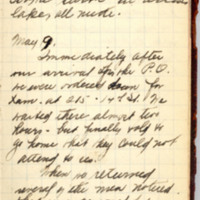 lakes all nude.
May 9.
Immediately after
our arrival at the P.O.
we were ordered down for
Xam. at 215 - 14 St. We
waited there almost two
hours - but finally told to
go home that they could not
attend to us.
When we returned
several of the men noticed